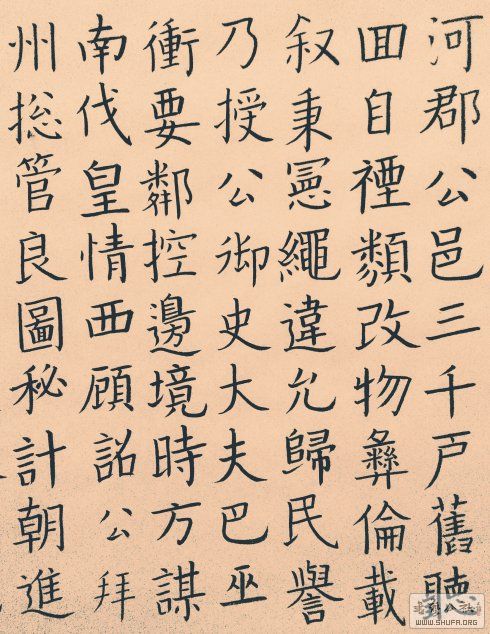 河郡公邑三千戸舊聴
囬自禋纇改物彝倫載
叙秉憲繩違允歸民譽
乃授公御史大夫巴巫
衝要鄰控邊境時方謀
南伐皇情西顧詔公拜
州捴管良圖秘計朝進
WWW.SHUFA.ORG